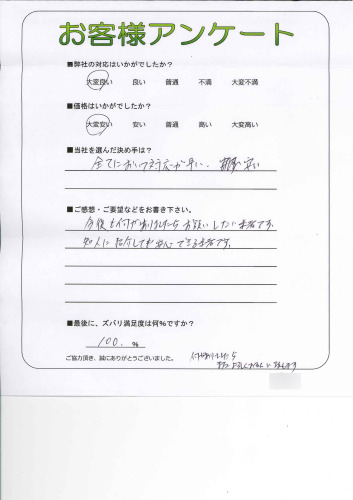 お客様アンケート
■弊社の対応はいかがでしたか?
大変良い 良い 普通 不満 大変不満
■価格はいかがでしたか?
大変安い 安い 普通 高い 大変高い
■当社を選んだ決め手は?
全てにおいて対応が早い、 安い
■ご感想・ご要望などをお書き下さい。
今後も何かありましたらお願いしたい業者です。
知人に紹介しても安心できる業者です。
■最後に、ズバリ満足度は何%ですか?
100. %
ご協力頂き、誠にありがとうございました。
何かありましたら